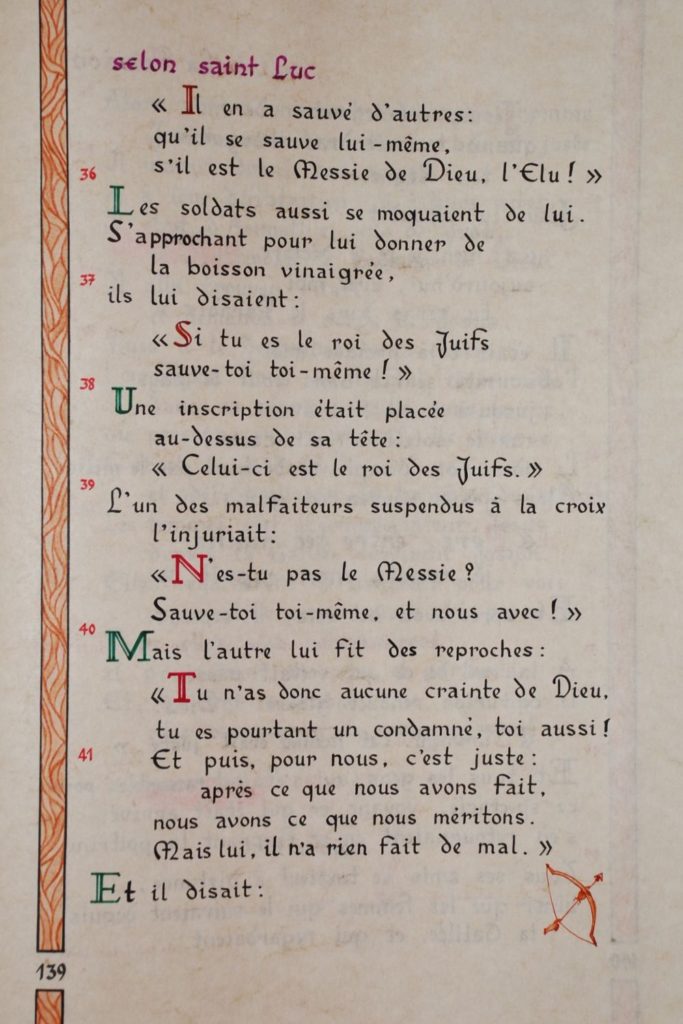 selon saint Luc
« Il en a sauvé d'autres:
qu'il se sauve lui-même,
s'il est le Messie de Dieu, l'Elu! »
36
Les soldats aussi se moquaient de lui.
S'approchant pour lui donner de
la boisson vinaigrée,
37
ils lui disaient:
« Si tu es le roi des Juifs
sauve-toi toi-même! »
38
Une inscription était placée
au-dessus de sa tête:
« Celui-ci est le roi des Juifs. »
39
L'un des malfaiteurs suspendus à la croix
l'injuriait:
« N'es-tu pas le Messie?
Sauve-toi toi-même, et nous avec! »
40
Mais l'autre lui fit des reproches:
« Tu n'as donc aucune crainte de Dieu,
tu es pourtant un condamné, toi aussi!
41
Et puis, pour nous, c'est juste:
après ce que nous avons fait,
nous avons ce que nous méritons.
Mais lui, il n'a rien fait de mal. »
Et il disait:
139